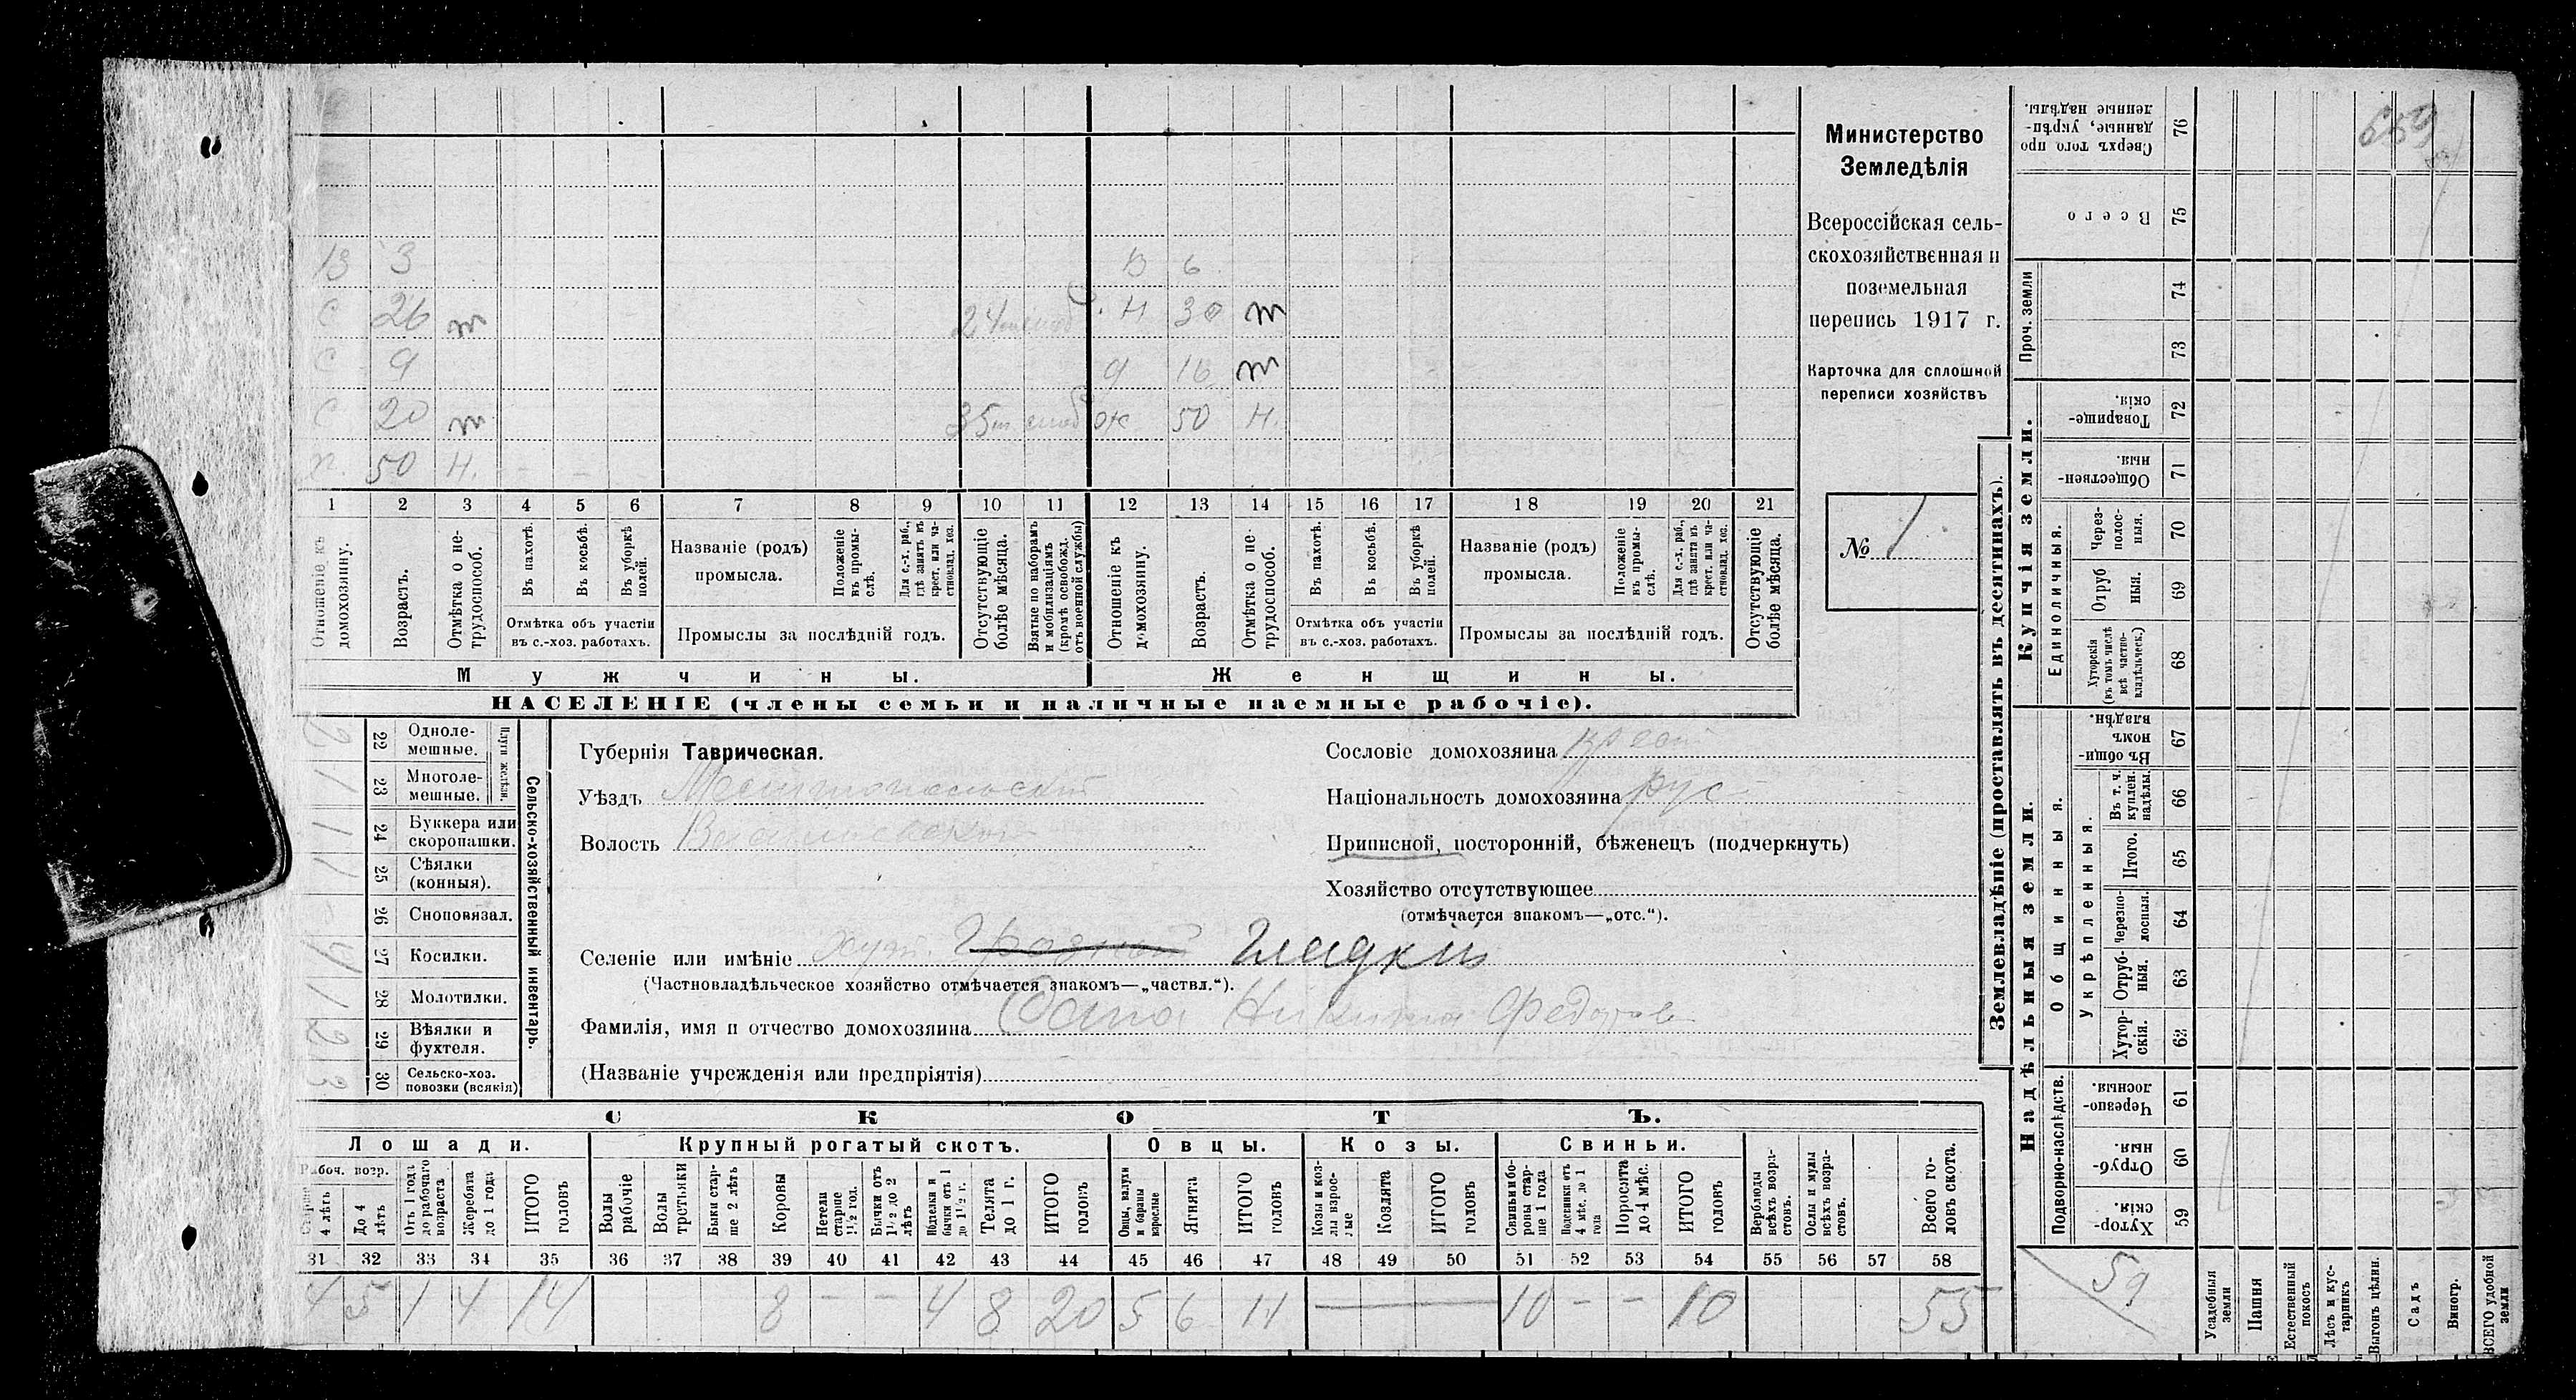 В 3 В 6
С 26 т Н 30 т
С 9 д 16 т
С 20 т ж 50 Н.
п. 50 Н. - -
1 2 3 4 5 6 7 8 9 10 11 12 13 14 15 16 17 18 19 20 21
Отношеніе къ домохозяину.
Возрастъ.
Отмѣтка о нетрудоспособ.
Въ пахотѣ.
Въ косьбѣ.
Въ уборкѣ полей.
Отмѣтка объ участіи въ с.-хоз. работахъ.
Названіе (родъ) промысла.
Положеніе въ промыслѣ.
Для с.-х. раб., гдѣ занятъ въ крест. или частновлад. хоз.
Промыслы за послѣдній годъ.
Отсутствующіе болѣе мѣсяца.
Взятые по наборамъ и мобилизаціямъ (кромѣ освобожд. отъ военной службы)
Отношеніе къ домохозяину.
Возрастъ.
Отмѣтка о нетрудоспособ.
Въ пахотѣ.
Въ косьбѣ.
Въ уборкѣ полей.
Отмѣтка объ участіи въ с.-хоз. работахъ.
Названіе (родъ) промысла.
Положеніе въ промыслѣ.
Для с.-х. раб., гдѣ занята въ крест. или частновлад. хоз.
Промыслы за послѣдній годъ.
Отсутствующіе болѣе мѣсяца.
Мужчины. Женщины.
НАСЕЛЕНІЕ (члены семьи и наличные наемные рабочіе).
Министерство
Земледѣлія
Всероссійская сель-
скохозяйственная и
поземельная
перепись 1917 г.
Карточка для сплошной
переписи хозяйствъ
№ 1
22 Однолемешные.
23 Многолемешные.
Плуги желѣзн.
24 Буккера или скоропашки.
25 Сѣялки (конныя).
26 Сноповязал.
27 Косилки.
28 Молотилки.
29 Вѣялки и фухтеля.
30 Сельско-хоз. повозки (всякія)
Сельско-хозяйственный инвентарь.
Губернія Таврическая.
Уѣздъ Мелитопольскій
Волость
Сословіе домохозяина крест
Національность домохозяина рус
Приписной, посторонній, бѣженецъ (подчеркнуть)
Хозяйство отсутствующее
(отмѣчается знакомъ—„отс.“).
Селеніе или имѣніе хут. Гладкій
(Частновладѣльческое хозяйство отмѣчается знакомъ—„частвл.“).
Фамилія, имя и отчество домохозяина Никита Федоров
(Названіе учрежденія или предпріятія)
СКОТЪ.
Лошади. Крупный рогатый скотъ. Овцы. Козы. Свиньи.
Рабоч. возр.
Старше 4 лѣтъ
До 4 лѣтъ
Отъ 1 года до рабочаго возраста
Жеребята до 1 года
ИТОГО головъ
Волы рабочіе
Волы третьяки
Быки старше 2 лѣтъ
Коровы
Нетели старше 1½ год.
Бычки отъ 1½ до 2 лѣтъ
Нѣдтелки и бычки отъ 1 до 1½ г.
Телята до 1 г.
ИТОГО головъ
Овцы, валухи и бараны взрослые
Ягнята
ИТОГО головъ
Козы и козлы взрослые
Козлята
ИТОГО головъ
Свиньи и боровы старше 1 года
Подсвинки отъ 4 мѣс. до 1 года
Поросята до 4 мѣс.
ИТОГО головъ
Верблюды всѣхъ возрастовъ.
Ослы и мулы всѣхъ возрастовъ.
Всего головъ скота.
31 32 33 34 35 36 37 38 39 40 41 42 43 44 45 46 47 48 49 50 51 52 53 54 55 56 57 58
4 5 1 4 14 8 - - 4 8 20 5 6 11 — 10 - - 10 55
Землевладѣніе (проставлять въ десятинахъ).
Купчія земли.
Проч. земли
Единоличныя.
Сверхъ того проданные, укрѣпленные надѣлы. 76
Всего 75
74
73
Товарищескія. 72
Общественныя. 71
Черезполосныя. 70
Отрубныя. 69
Хуторскія (въ томъ числѣ всѣ частновладѣльческ.) 68
Надѣльныя земли.
Общинныя.
Укрѣпленныя.
Въ общинномъ владѣн. 67
Въ т. ч. куплен. надѣлы. 66
Итого. 65
Черезполосныя. 64
Отрубныя. 63
Хуторскія. 62
Подворно-наслѣдств.
Черезполосныя. 61
Отрубныя. 60
Хуторскія. 59
659
59
Усадебныя земли
Пашня
Естественный покосъ
Лѣсъ и кустарникъ
Выгонъ цѣлин.
Садъ
Виногр.
ВСЕГО удобной земли